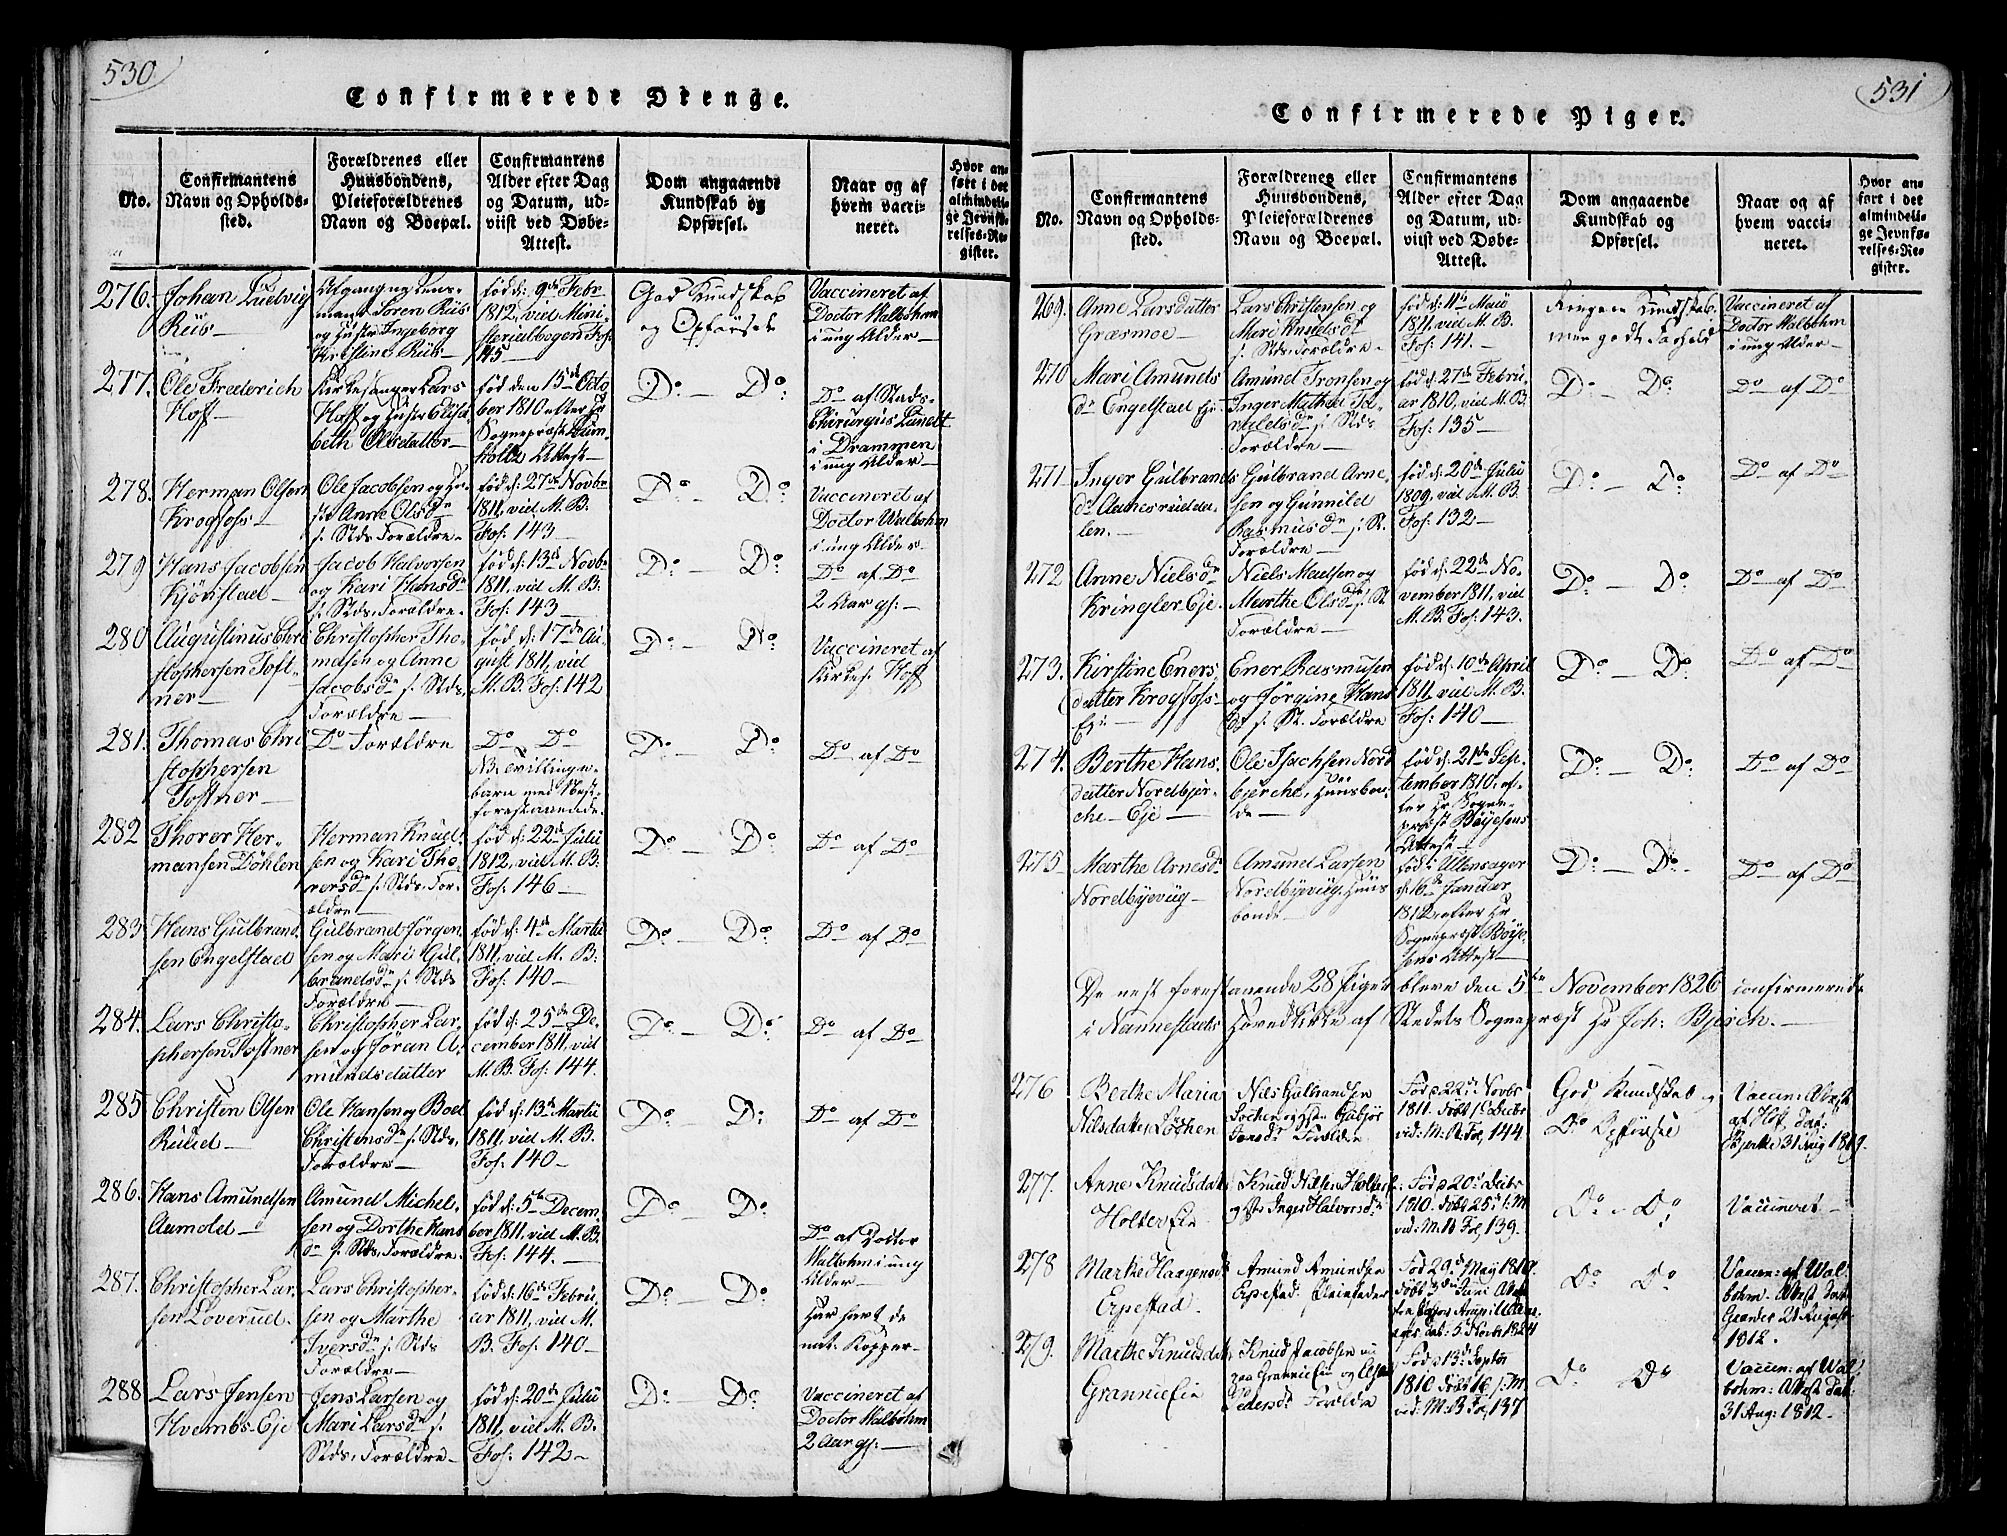 530
Confirmerede Drenge.
No.
Confirmantens
Navn og Opholds-
sted.
Forældrenes eller
Huusbondens,
Pleieforældrenes
Navn og Boepæl.
Confirmantens
Alder efter Dag
og Datum, ud-
viist ved Døbe-
Attest.
Dom angaaende
Kundskab og
Opførsel.
Naar og af
hvem vacci-
neret.
Hvor an-
ført i det
almindeli-
ge Jevnfø-
relses-Re-
gister.
276.
Johan Ludvig
Riis
Afgangne Lens-
mand Søren Riis
og Hustru Ingeborg
Kirstine Riis
fød d: 9de Febr
1812, vid Mini-
sterialbogen Fol:
145
God Kundskab
og Opførsel
Vaccineret af
Doctor Walbohm
i ung Alder
277.
Ole Frederich
Hoff
Kirkesanger Lars
Hoff og Hustru Elisa-
beth Olsdatter
fød den 15de Octo
ber 1810 efter Hr
Sognepræst
Attest
Do - Do
Do af Stads-
Chirurgus Lundt
i Drammen
i ung Alder
278.
Herman Olsen
Krogfoss
Ole Jacobsen og Hu-
stru Anne Olsdr
f. Stds. Forældre
fød d: 27de Novbr
1811, vid M. B.
Fol: 143
Do - Do
Vaccineret af
Doctor Walbohm
i ung Alder
279
Hans Jacobsen
Kjönstad
Jacob Halvorsen
og Kari Hansdr
f. Stds. Forældre
fød d: 13de Novbr
1811, vid M. B.
Fol: 143
Do - Do
Do af Do
2 Aar gl:
280
Augustinus Chri
stophersen Toft-
ner
Christopher Tho-
masen og Anne
Jacobsdr f. Stds.
Forældre
fød d: 17de Au-
gust 1811, vid
M. B. Fol: 142
Do - Do
Vaccineret af
Kirkes: Hoff
281.
Thomas Chri
stophersen
Toftner
Do Forældre
Do Do
NB. Tvillinge-
barn med næst-
forestaaende
Do - Do
Do af Do
282
Thorer Her-
mansen Döhlen
Herman Knud-
sen og Kari Tho
rersdr f. Stds. For-
ældre
fød d: 22de Julii
1812, vid M. B.
Fol: 146
Do - Do
Do af Do
283
Hans Gulbrand-
sen Engelstad
Gulbrand Jörgen-
sen og Mari Gul-
brandsdr f. Stds
Forældre
fød d: 4de Martii
1811, vid M. B.
Fol: 140
Do - Do
Do af Do
284.
Lars Christo-
phersen Tostner
Christopher Lar-
sen og Joran A-
mundsdatter
fød d: 25de De-
cember 1811, vid
M. B. Fol: 144.
Do - Do
Do af Do
285
Christen Olsen
Ruud
Ole Hansen og Boel
Christensdr f. Stds.
Forældre
fød d: 13de Martii
1811, vid M. B.
Fol: 140
Do - Do
Do af Do
286.
Hans Amundsen
Aamold
Amund Michel-
sen og Dorthe Hans
dr f. Stds. Forældre
fød d: 5te Decem-
ber 1811, vid M. B.
Fol: 144.
Do - Do
Do af Doctor
Walbohm i ung
Alder
287.
Christopher Lar-
sen Löverud.
Lars Christopher-
sen og Marthe
Iversdr f. Stds
Forældre
fød d: 16de Febru-
ar 1811, vid M.
B. Fol: 140
Do - Do
Har havt de
nat. Kopper
288
Lars Jensen
Hvembs-Eje
Jens Larsen og
Mari Larsdr f.
Stds. Forældre
fød d: 20de Julii
1811, vid M. B.
Fol: 142
Do Do
Vaccineret af
Doctor Walbohm
2 Aar gl:
531
Confirmerede Piger.
No.
Confirmantens
Navn og Opholds-
sted.
Forældrenes eller
Huusbondens,
Pleieforældrenes
Navn og Boepæl.
Confirmantens
Alder efter Dag
og Datum, ud-
viist ved Døbe-
Attest.
Dom angaaende
Kundskab og
Opførsel.
Naar og af
hvem vacci-
neret.
Hvor an-
ført i det
almindeli-
ge Jevnfø-
relses-Re-
gister.
269.
Anne Larsdatter
Græsmoe
Lars Christensen og
Mari Knudsdr
f. Stds. Forældre
fød d: 11te Maii
1811, vid M. B.
Fol: 141.
Ringere Kundskab,
men godt Forhold
Vaccineret af
Doctor Walbohm
i ung Alder
270
Mari Amunds
dr Engelstad Eje
Amund Tronsen og
Inger Mathea
f. Stds
Forældre
fød d: 27de Febru-
ar 1810, vid M. B.
Fol: 135
Do - Do
Do af Do
271
Inger Gulbrands
dr Aamosrudda-
len.
Gulbrand Arne-
sen og Gunnild
Rasmusdr f. St.
Forældre
fød d: 20de Julii
1809, vid M. B.
Fol: 132
Do - Do
Do af Do
272
Anne Nielsdr
Kringler Eje.
Niels Madsen og
Marthe Olsdr f. St
Forældre
fød d: 22de No-
vember 1811, vid
M. B. Fol: 143.
Do - Do
Do af Do
273.
Kirstine Eners-
datter Krogfoss-
Eje
Ener Rasmusen
og Jörgine Hans
dr f. St. Forældre
fød d: 10de April
1811, vid M. B.
Fol: 140
Do - Do
Do af Do
274.
Berthe Hans-
datter Nordbjer-
che-Eje
Ole Isachsen Nord
bjerche, Huusbon-
de
fød d: 21de Sep-
tember 1810, ef-
ter Hr Sogne-
præst Boyesens
Attest
Do - Do
Do af Do
275
Marthe Arnesdr
Nordbyevug
Amund Larsen
Nordbyevug, Huus
bonde
fød i Ullensager
d: 16de Januar
1812 efter Hr
Sognepræst Boye-
sens Attest
Do - Do
Do af Do
De nest forestaaende 28 Piger bleve den 5te November 1826 confirmerede
i Nannestads Hovedkirke af Stedets Sognepræst Hr Joh: Bjerch.
276
Berthe Maria
Nilsdatter Lochen
Nils Gulbrandsen
Lochen og Hst Guloe
Forældre
Fød 22de Novbr
1811. döbt 1e Decbr
vid: M. B. Fol, 144.
God Kundskab og
Do Opførsel
Vaccin: Attest
af Hof, dat:
Bjerke 31 Aug 1819.
277.
Anne Knudsdatr
Holter Eie
Knud Nilsen Holter
og Hst Inger Halvorsdr
Fød 20de Decbr
1810. döbt 25de s: M
vid: M. B Fol, 139.
Do - Do
Vaccineret
278
Marthe Haagensdr
Erpestad.
Amund Amundsen
Erpestad. Pleiefader
Fød 29de May 1810.
döbt 3de Juni
dat: 5. Novbr 1824
Do Do
Vaccin: af Wal-
bohm. Attest dat:
Grander 21 August
1812.
279.
Marthe Knudsdatr.
Granrud Eie
Knud Jacobsen
paa Granrud Eie og
Pedersdr Forældre
Fød 13de Septbr
1810 döbt 16 s: M
vid: M: B Fol, 137
Do Do
Vaccin: af Wal-
bohm: Attest dat:
31 Aug: 1812.